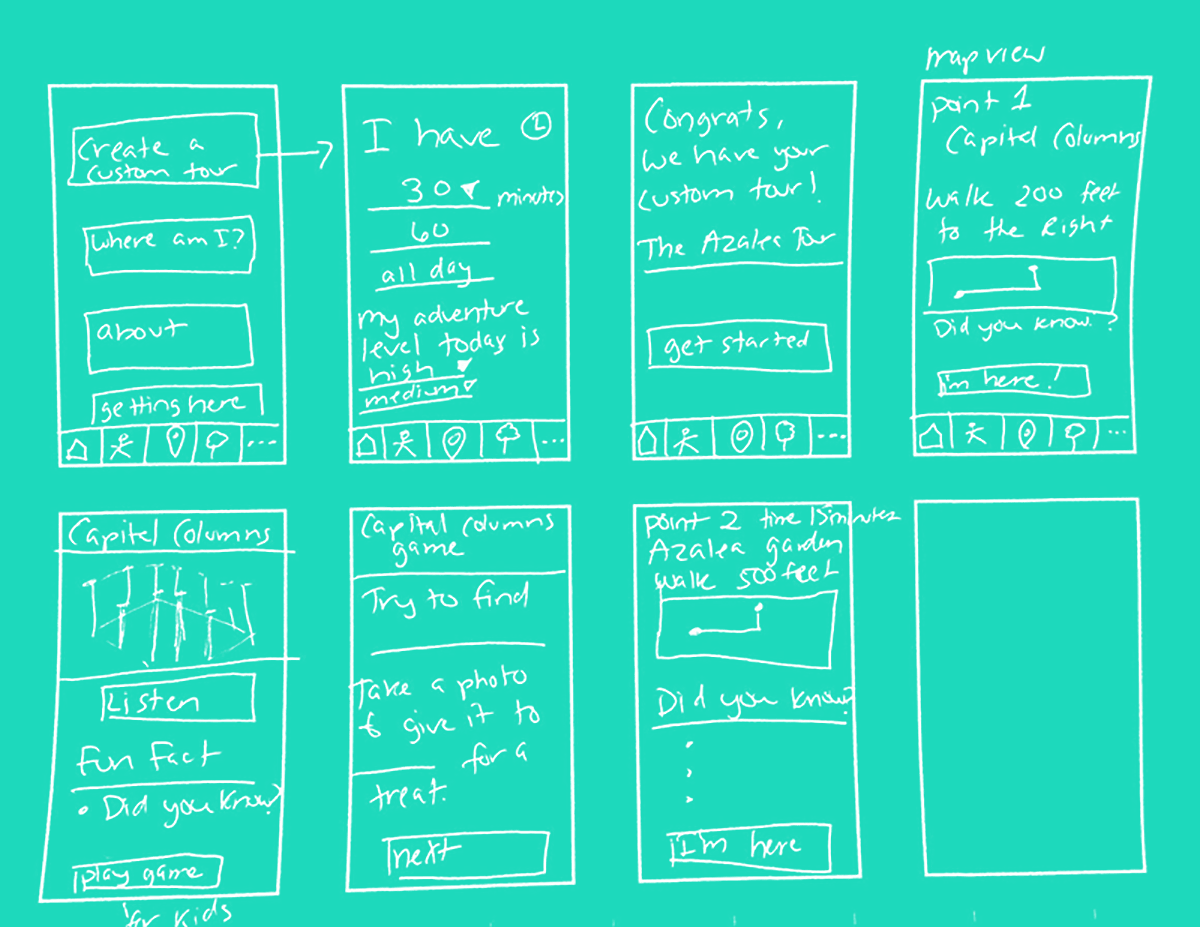 Create a
custom tour
where am I?
about
getting here
...
I have
30 minutes
60
all day
my adventure
level today is
high
medium
...
Congrats,
we have your
custom tour!
The Azalea Tour
get started
...
map view
point 1
Capitel Columns
walk 200 feet
to the Right
Did you know?
i'm here!
...
Capitel Columns
Listen
Fun Fact
• Did you know?
play game
for kids
Capital columns
game
Try to find
Take a photo
& give it to
for a
treat.
next
point 2 time 15 minutes
Azalea garden
walk 500 feet
Did you know?
I'm here